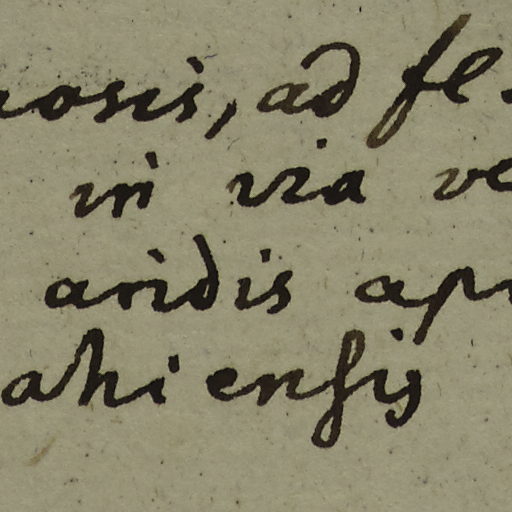 osis, ad fl.
in via ve
aridis apr
ahiensis